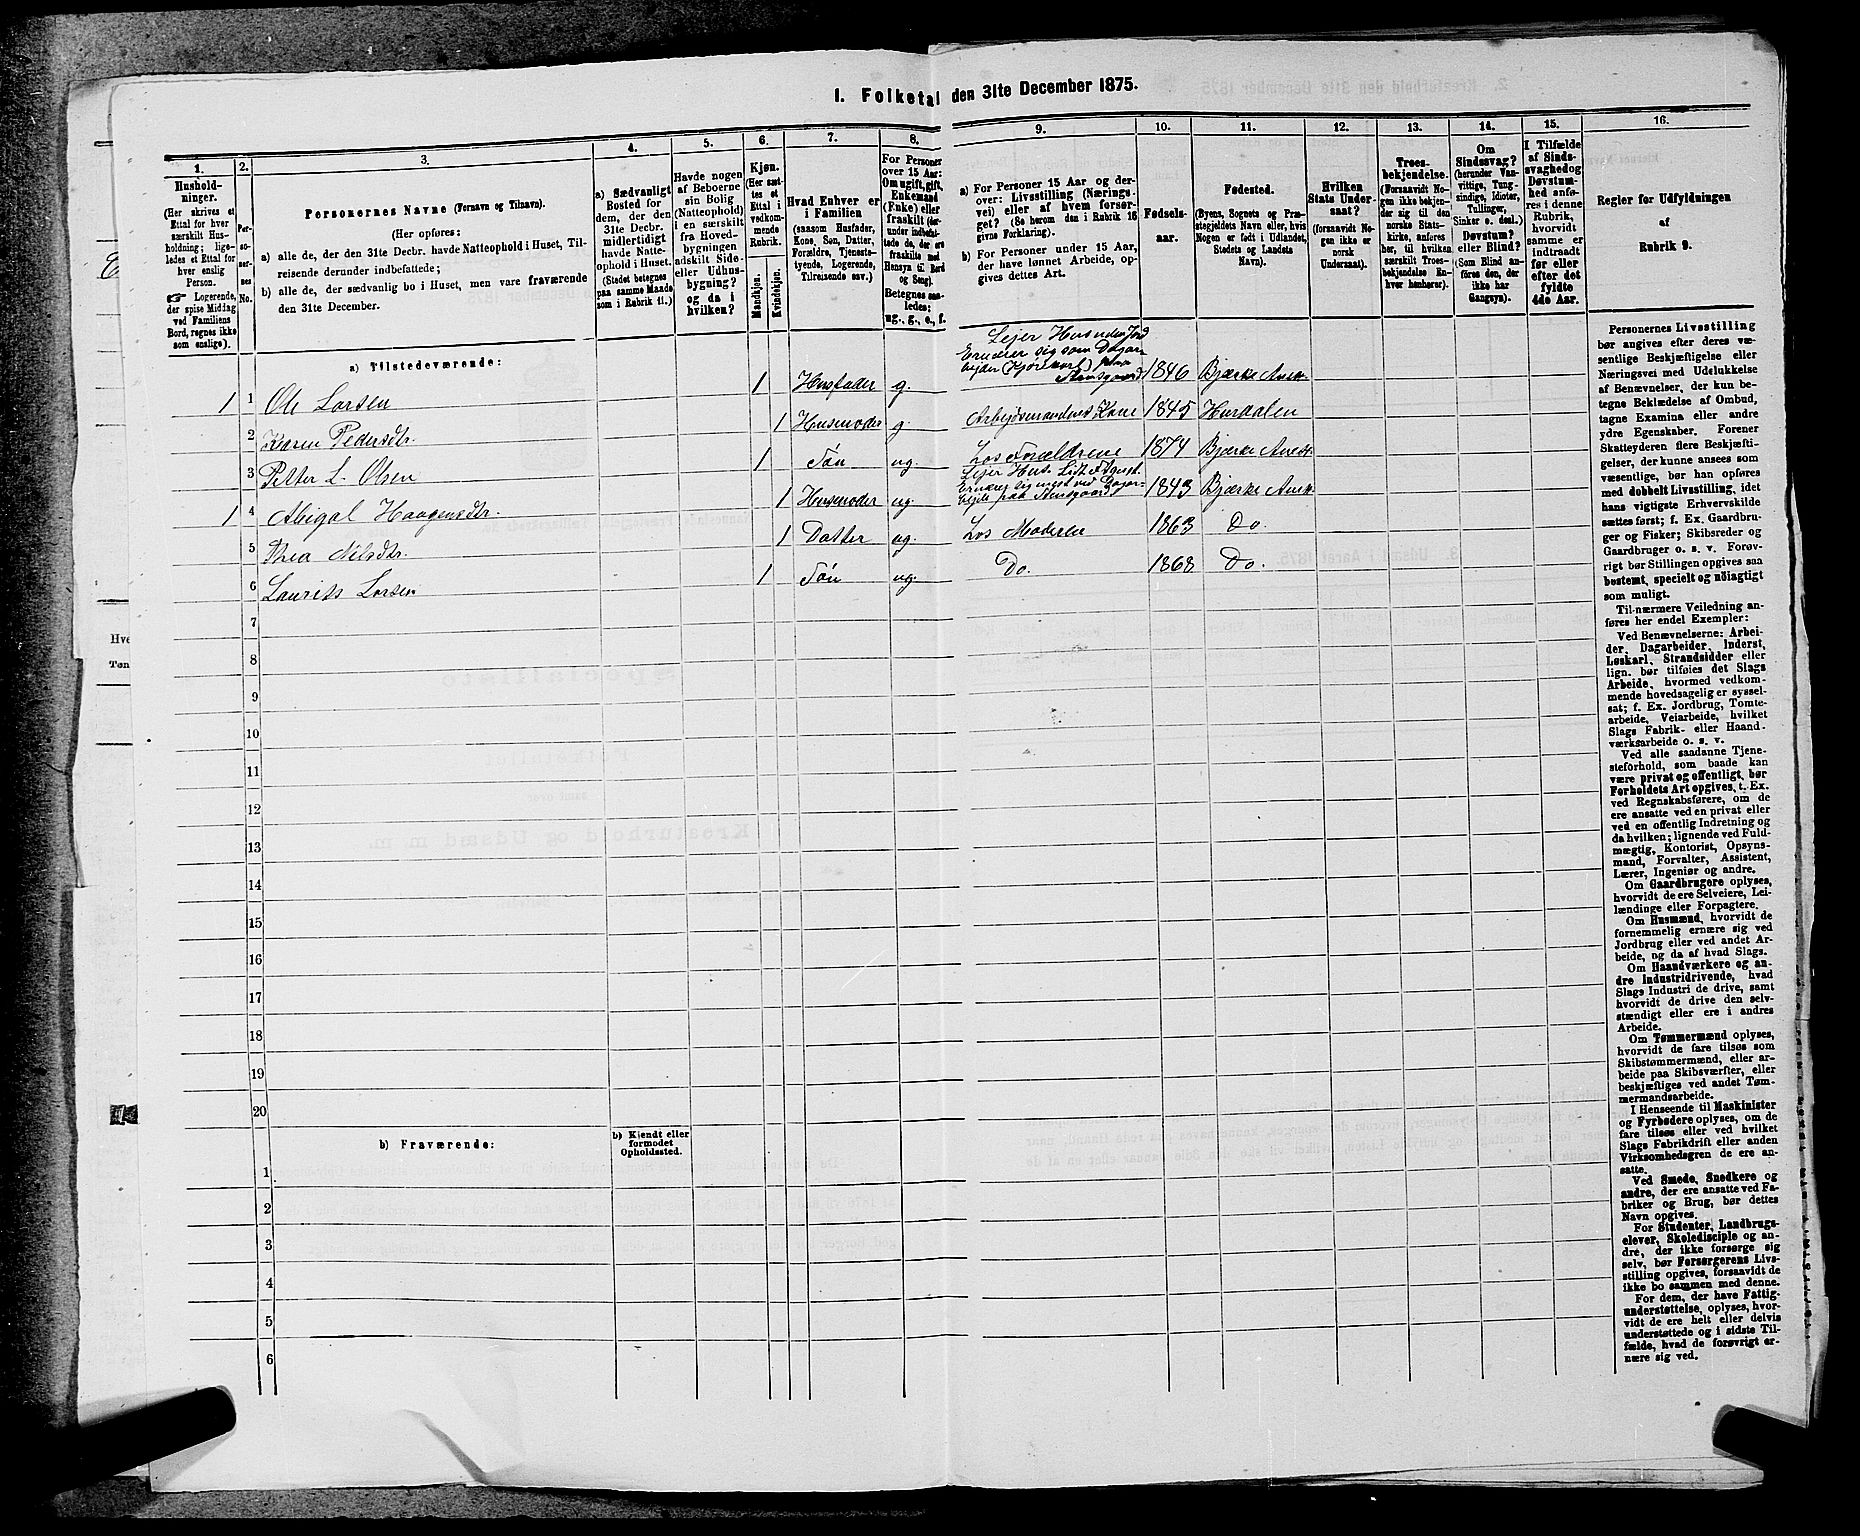 1. Folketal den 31te December 1875.
1. 2. 3. 4. 5. 6. 7. 8. 9. 10. 11. 12. 13. 14. 15. 16.
Husholdninger.
(Her skrives et
Ettal for hver
særskilt Husholdning;
ligeledes et Ettal for
hver enslig
Person.
☞ Logerende,
der spise Middag
ved Familiens
Bord, regnes ikke
som enslige).
Personernes No.
Personernes Navne (Fornavn og Tilnavn).
(Her opføres:
a) alle de, der den 31te Decbr. havde Natteophold i Huset, Tilreisende
derunder indbefattede;
b) alle de, der sædvanlig bo i Huset, men vare fraværende
den 31te December.
a) Sædvanligt
Bosted for
dem, der den
31te Decbr.
midlertidigt
havde Natteophold
i Huset.
(Stedet betegnes
paa samme Maade
som i Rubrik 11.)
Havde nogen
af Beboerne
sin Bolig
(Natteophold)
i en særskilt
fra Hovedbygningen
adskilt Side- eller
Udhusbygning?
og da i
hvilken?
Kjøn.
(Her sættes et
Ettal i
vedkommende
Rubrik.
Mandkjøn.
Kvindekjøn.
Hvad Enhver er
i Familien
(saasom Husfader,
Kone, Søn, Datter,
Forældre, Tjenestetyende,
Logerende,
Tilreisende osv.)
For Personer
over 15 Aar:
Om ugift, gift,
Enkemand
(Enke) eller
fraskilt (herunder
indbefattede
de, der ere
fraskilte med
Hensyn til Bord
og Seng).
Betegnes saaledes:
ug., g., e., f.
a) For Personer 15 Aar og derover:
Livsstilling (Næringsvei)
eller af hvem forsørget?
(Se herom den i Rubrik 16
givne Forklaring).
b) For Personer under 15 Aar,
der have lønnet Arbeide, opgives
dettes Art.
Fødselsaar.
Fødested.
(Byens, Sognets og Præstegjeldets
Navn eller, hvis
Nogen er født i Udlandet,
Stedets og Landets
Navn).
Hvilken
Stats Undersaat?
(forsaavidt Nogen
ikke er
norsk
Undersaat).
Troesbekjendelse.
(Forsaavidt Nogen
ikke bekjender
sig til den
norske Statskirke,
anføres
her, til hvilken
særskilt Troesbekjendelse
Enhver henhører).
Om
Sindssvag?
(herunder Vanvittige,
Tungsindige,
Idioter,
Tullinger,
Sinker o. desl.)
Døvstum?
eller Blind?
(Som Blind anføres
den, der
ikke har
Gangsyn).
I Tilfælde
af Sindssvaghed
og
Døvstumhed
anføres
i denne
Rubrik,
hvorvidt
samme er
indtraadt
før eller
efter det
fyldte
4de Aar.
Regler for Udfyldningen
af
Rubrik 9.
a) Tilstedeværende:
1 1 Ole Larsen 1 Husfader g. Lejer Hus uden Jord Ernærer sig som Dagarbejder (Kjørekarl) paa 1846 Bjærke
2 Karen Pedersdtr. 1 Husmoder g. Arbejdsmandens Kone 1845 Hurdalen
3 Petter L. Olsen 1 Søn ug. Hos Forældrene 1874 Bjærke
1 4 Abigal Haagensdtr. 1 Husmoder ug. Lejer Hus. Ernærer sig mest ved Dagarbejde paa 1843 Bjærke
5 Thea Nilsdtr. 1 Datter ug. Hos Moderen 1863 Do.
6 Laurits Larsen 1 Søn ug. Do. 1868 Do.
7
8
9
10
11
12
13
14
15
16
17
18
19
20
b) Fraværende:
b) Kjendt eller
formodet
Opholdssted.
1
2
3
4
5
6
Personernes Livsstilling
bør angives efter deres væsentlige
Beskjæftigelse eller
Næringsvei med Udelukkelse
af Benævnelser, der kun betegne
Beklædelse af Ombud,
tagne Examina eller andre
ydre Egenskaber. Forener
Skatteyderen flere Beskjæftigelser,
der kunne ansees som
væsentlige, bør han opføres
med dobbelt Livsstilling, idet
hans vigtigste Erhvervskilde
sættes først; f. Ex. Gaardbruger
og Fisker; Skibsreder og
Gaardbruger o. s. v. Forøvrigt
bør Stillingen opgives saa
bestemt, specielt og nöiagtigt
som muligt.
Til nærmere Veiledning anføres
her endel Exempler:
Ved Benævnelserne: Arbeider,
Dagarbeider, Inderst,
Løskarl, Strandsidder eller
lign. bør tilføies det Slags
Arbeide, hvormed vedkommende
hovedsagelig er sysselsat;
f. Ex. Jordbrug, Tomtearbeide,
Veiarbeide, hvilket
Slags Fabrik- eller Haandværksarbeide
o. s. v.
Ved alle saadanne Tjenesteforhold,
som baade kan
være privat og offentligt, bør
Forholdets Art opgives, t. Ex.
ved Regnskabsførere, om de
ere ansatte ved en privat eller
ved en offentlig Indretning og
da hvilken; lignende ved Fuldmægtig,
Kontorist, Opsynsmand,
Forvalter, Assistent,
Lærer, Ingeniør og andre.
Om Gaardbrugere oplyses,
hvorvidt de ere Selveiere, Leilændinge
eller Forpagtere.
Om Husmænd, hvorvidt de
fornemmelig ernære sig ved
Jordbrug eller ved andet Arbeide,
og da af hvad Slags.
Om Haandværkere og andre
Industridrivende, hvad
Slags Industri de drive, samt
hvorvidt de drive den selvstændigt
eller ere i andres
Arbeide.
Om Tømmermænd oplyses,
hvorvidt de fare tilsøs som
Skibstømmermænd, eller arbeide
paa Skibsværfter, eller
beskjæftiges ved andet Tømmermandsarbeide.
I Henseende til Maskinister
og Fyrbødere oplyses, om de
fare tilsøs eller ved hvilket
Slags Fabrikdrift eller anden
Virksomhedsgren de ere ansatte.
Ved Smede, Snedkere og
andre, der ere ansatte ved Fabriker
og Brug, bør dettes
Navn opgives.
For Studenter, Landbrugselever,
Skoledisciple og andre,
der ikke forsørge sig
selv, bør Forsørgerens Livsstilling
opgives, forsaavidt de
ikke bo sammen med denne.
For dem, der have Fattigunderstøttelse,
oplyses, hvorvidt
de ere helt eller delvis
understøttede og i sidste Tilfælde,
hvad de forøvrigt ernære
sig ved.
Hve
Tøn